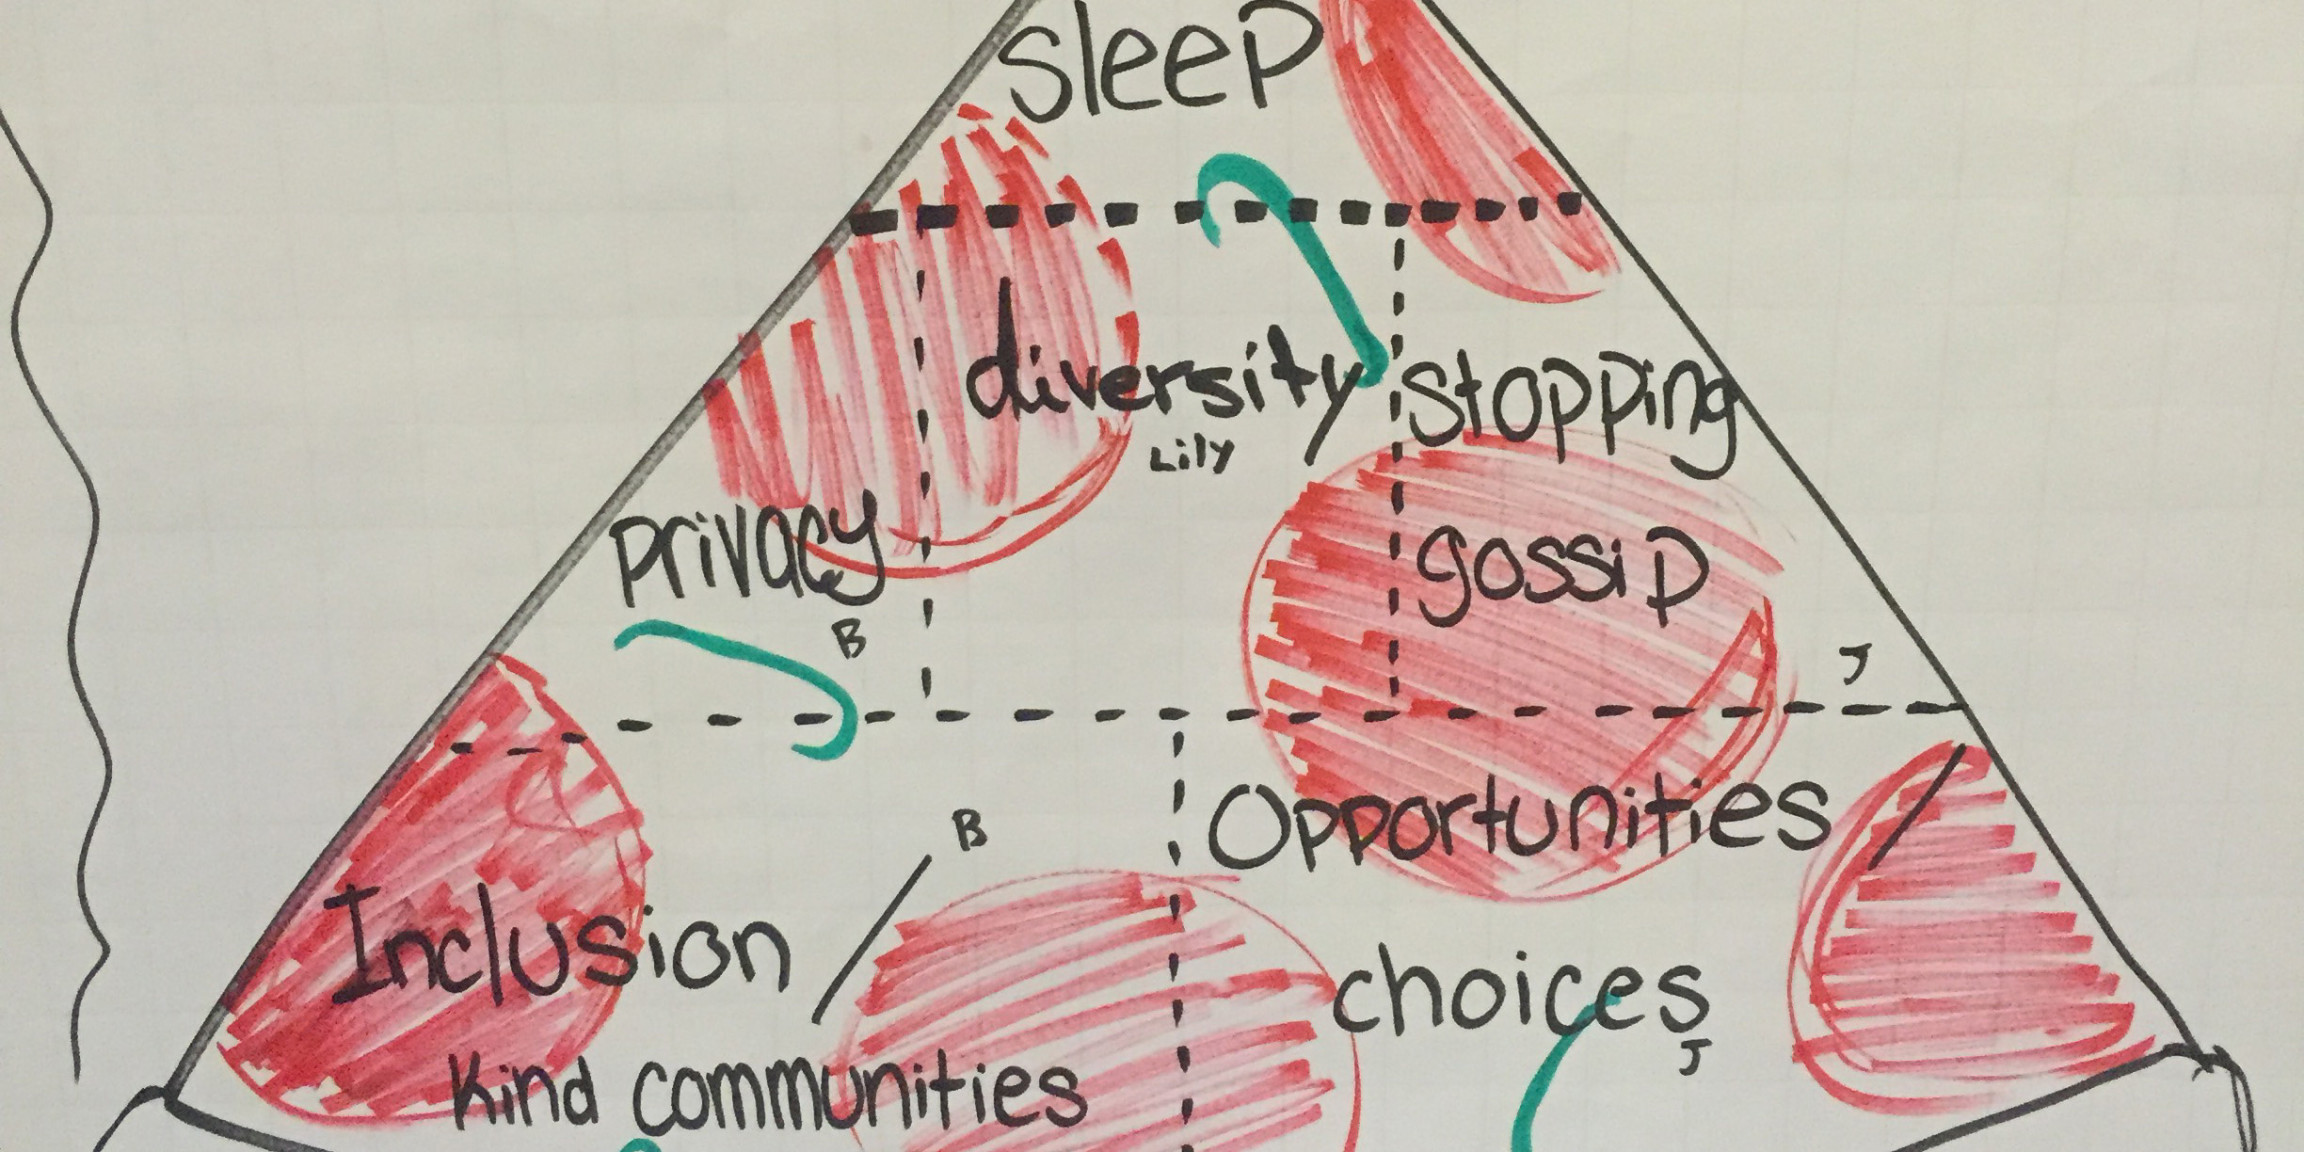 sleep
diversity
Lily
stopping
gossip
privacy
B
J
B
Opportunities
choices
J
Inclusion
Kind communities